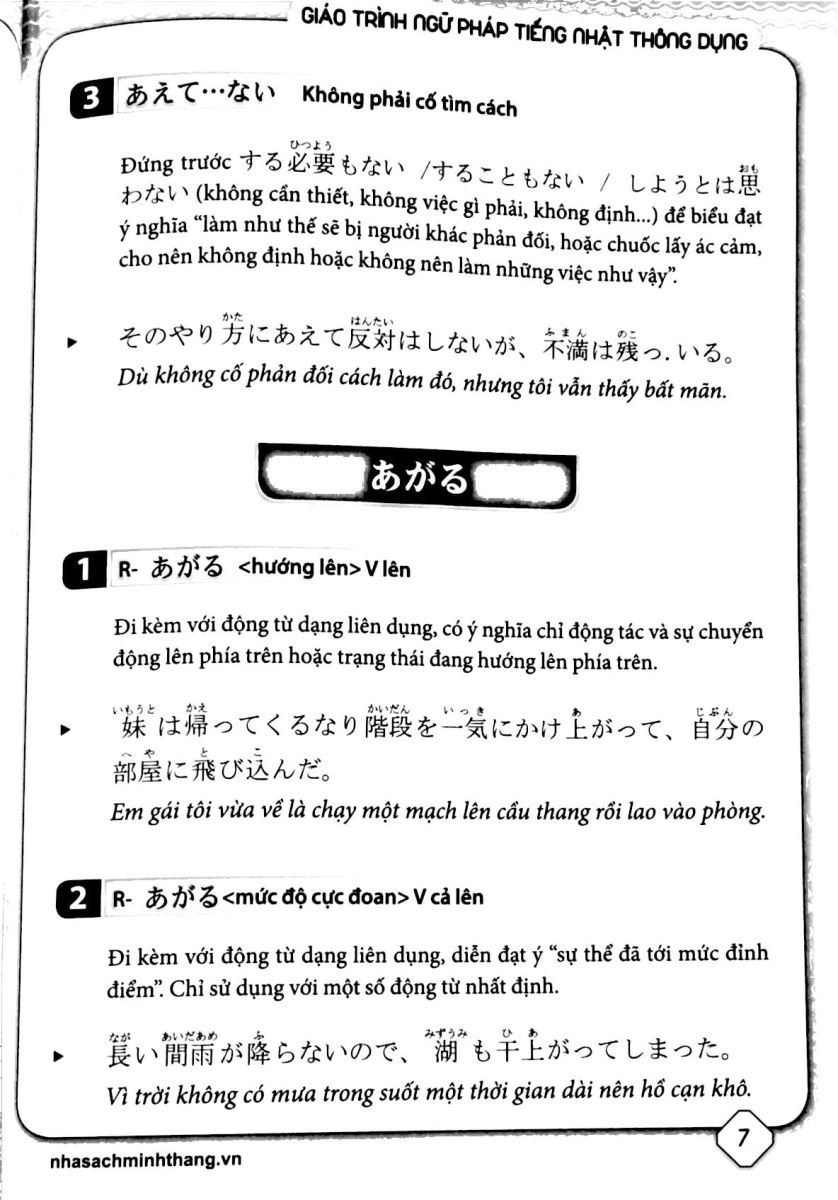 GIÁO TRÌNH NGỮ PHÁP TIẾNG NHẬT THÔNG DỤNG
3 あえて…ない Không phải cố tìm cách
ひつよう おも
Đứng trước する必要もない /することもない / しようとは思
わない (không cần thiết, không việc gì phải, không định...) để biểu đạt
ý nghĩa “làm như thế sẽ bị người khác phản đối, hoặc chuốc lấy ác cảm,
cho nên không định hoặc không nên làm những việc như vậy”.
かた はんたい ふまん のこ
そのやり方にあえて反対はしないが、不満は残っ.いる。
Dù không cố phản đối cách làm đó, nhưng tôi vẫn thấy bất mãn.
あがる
1 R- あがる <hướng lên> V lên
Đi kèm với động từ dạng liên dụng, có ý nghĩa chỉ động tác và sự chuyển
động lên phía trên hoặc trạng thái đang hướng lên phía trên.
いもうと かえ かいだん いっき あ じぶん
妹は帰ってくるなり階段を一気にかけ上がって、自分の
へや と こ
部屋に飛び込んだ。
Em gái tôi vừa về là chạy một mạch lên cầu thang rồi lao vào phòng.
2 R- あがる<mức độ cực đoan> V cả lên
Đi kèm với động từ dạng liên dụng, diễn đạt ý “sự thể đã tới mức đỉnh
điểm”. Chỉ sử dụng với một số động từ nhất định.
なが あいだあめ ふ みずうみ ひ あ
長い間雨が降らないので、湖も干上がってしまった。
Vì trời không có mưa trong suốt một thời gian dài nên hồ cạn khô.
7
nhasachminhthang.vn